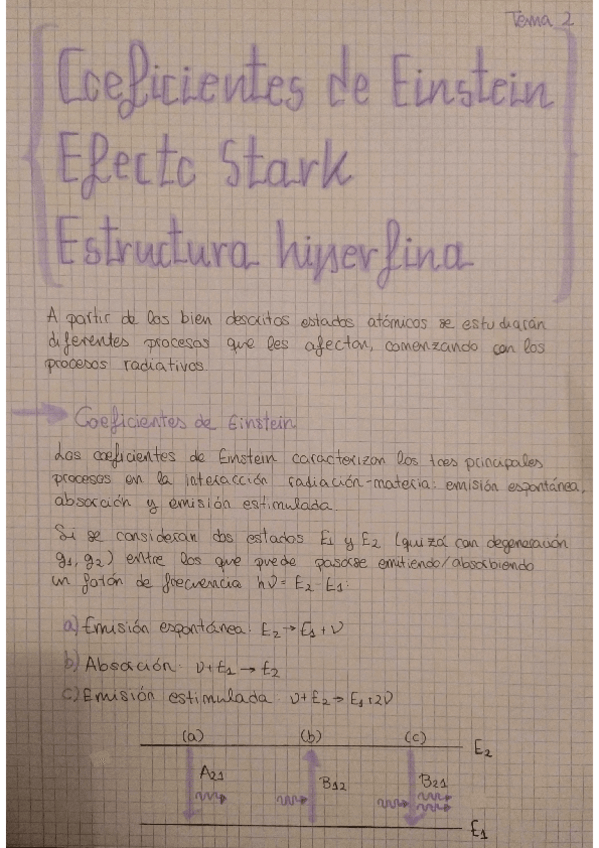 Tema 2
Coeficientes de Einstein
Efecto Stark
Estructura hiperfina
A partir de los bien descritos estados atómicos se estudiarán
diferentes procesos que les afectan, comenzando con los
procesos radiativos.
Coeficientes de Einstein
Los coeficientes de Einstein caracterizan los tres principales
procesos en la interacción radiación-materia: emisión espontánea,
absorción y emisión estimulada.
Si se consideran dos estados E1 y E2 (quizá con degeneración
g1, g2) entre los que puede pasarse emitiendo/absorbiendo
un fotón de frecuencia hν = E2-E1:
a) Emisión espontánea: E2 → E1 + ν
b) Absorción: ν + E1 → E2
c) Emisión estimulada: ν + E2 → E1 + 2ν
(a) (b) (c)
E2
A21 B12 B21
E1